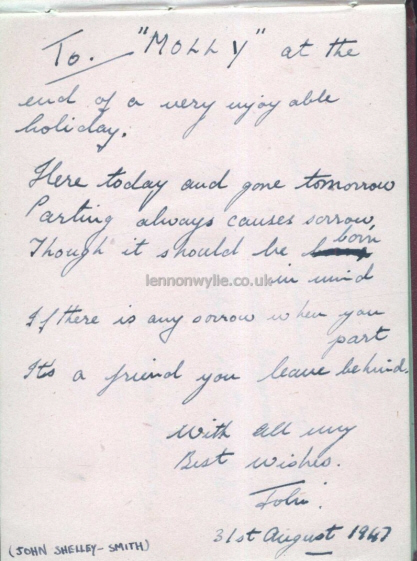 To. "MOLLY" at the
end of a very enjoyable
holiday.
Here today and gone tomorrow
Parting always causes sorrow,
Though it should be born
in mind
lennonwylie.co.uk
If there is any sorrow when you
part
Its a friend you leave behind.
With all my
Best wishes.
John
31st August 1947
(JOHN SHELLEY-SMITH)